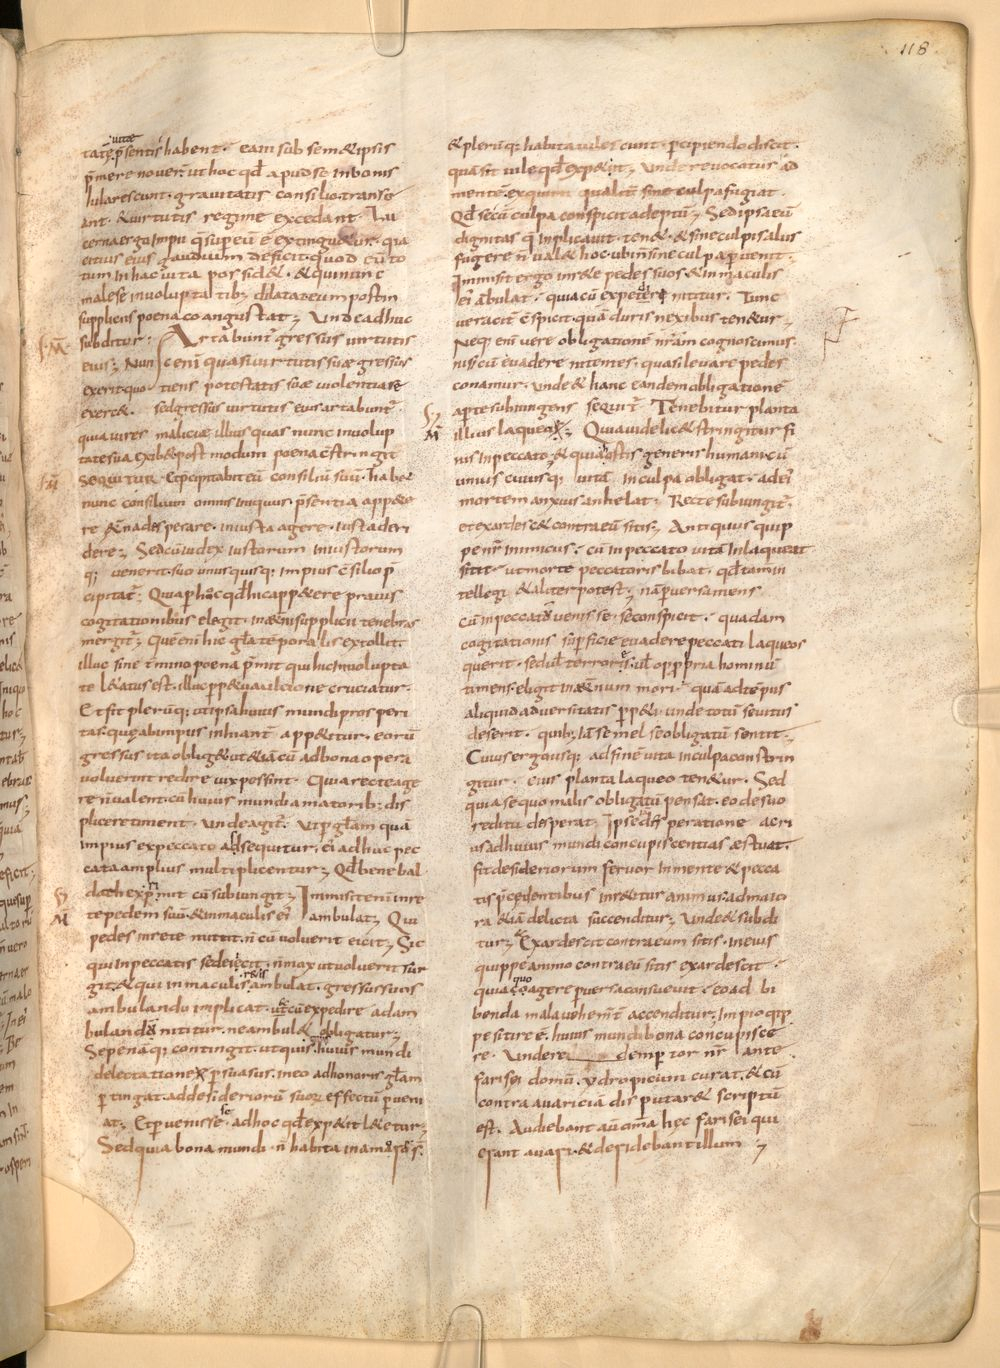 118
vitae
tatē p̄sentis habent. eam sub semetipsis
p̄mere noveř ut hoc qđ apud se in bonis
lularescunt. gravitatis consilio. transe
ant. & virtutis regimē excedant. Lu
cerna ergo impii q̄ sup eū ē extinguetur. qia
citius eius gaudium deficit. quod eū to
tum in hac vita possid&. & qui nunc
male se in voluptatib; dilatat eum postm
suppliens poena coangustat; Unde adhuc
subditur. Artabunt̄ gressus virtutis
eius; Nunc enī quasi virtutis suae gressus
exerit. quotiens potestatis suae violentias
exerc&. sed gressus virtutis eius artabunt̄.
quia vires malitiae illius quas nunc in volup
tate sua exib& post modum poena c̄stringit
Sequitur. Et p̄cipitabit eū consiliū suū. habet
nunc consilium omnis iniquus p̄sentia app&e
re &̄na desperare. iniusta agere. iusta deri
dere; Sed cū iudex iustorum iniustorum
q; venerit. suo unusquisq; impius c̄silio p̄
cipitat̄. Quia p hoc qđ hic app&ere pravis
cogitationibus elegit. in aet̄ni supplicii tenebras
mergit̄; Quē enī hic gl̄a temporalis extollit.
illuc sine t̄mino poena p̄mit qui hic in volupta
te l&atus est. illuc pp&ua ulcione cruciatur.
Et fit plerūq; ut ipsa huius mundi prosperi
tas. quę ab impiis inhiant̄ app&itur. eorū
gressus ita oblig& ut &iā cū ad bona opera
voluerint redire vix possint. Quia recte age
re ñ valent. cū huius mundi amatorib; dis
plicere timent. unde agit̄. ut p gl̄am quā
impius ex peccato adsequitur. ei adhuc pec
cata amplius multiplicentur; Qđ bene bal
dath exp̄mit cū subiungit; Immisit enī in re
te pedem suū. & in maculis ei ambulat; Qui
pedes in rete mittit. ñ cū voluerit eicit; Sic
qui in peccatis se deiecit. ñ mox ut voluerit sur
git. & qui in maculis r&is ambulat. gressus suos
ambulando implicat. & cū expedire ad am
bulandū nititur. ne ambul& obligatur;
Sepe nāq; contingit. ut quis huius mundi
delectatione p̄suasus. in eo ad honoris gl̄am
ptingat. ad desideriorū suoꝝ effectū perveni
at; Et pvenisse se adhoc qđ exp&iit l&etur;
Sed quia bona mundi. ñ habita in amore s̄.
& plerūq; habita vilescunt. pcipiendo discit.
qua sit vile qđ exp&iit; Unde revocatus ad
mentē. exquirit qualit̄ sine culpa fugiat
Qđ se cū culpa conspicit adeptū; Sed ipsa eū
dignitas q̄ inplicavit. ten&. & sine culpis aliis
fugere ñ val& hoc. ubi ñ sine culpa pvenit.
Immisit ergo in r&e pedes suos & in maculis
ei ambulat. quia cū expedire nititur. Tunc
veracit̄ c̄spicit quā duris nexibus ten&ur;
Neq; enī vere obligationē nr̄am cognoscimus.
nisi cū evadere nitentes. quasi levare pedes
conamur. Unde & hanc eandem obligationē
apte subiungens sequit̄. Tenebitur planta
illius laqueo; Quia videlic& stringitur fi
nis in peccato; & quia ostis generis humani cū
unius cuiusq; vitā in culpa obligat. ad ei
mortem anxius anhelat. Recte subiungit̄.
et exardesc& contra eū sitis; Antiquus quip
pe nr̄ inimicus. cū in peccato vitā inlaqueat
sitit. ut morte peccatoris bibat. qđ tam in
tellegi & aliter potest; nā pversa mens
cū in peccatū venisse se conspicit. quadam
cogitationis supficie evadere peccati laqueos
querit. sed ul terrores. ul opprobria hominū
timens. eligit in aet̄num mori. quā ad tēpus
aliquid adversitatis ppeti. unde totū se vitiis
deserit. quib; iā semel se obligatū sentit;
Cuius ergo usq; ad finē vita in culpa constrin
gitur. eius planta laqueo ten&ur. Sed
quia se quo malis obligatū pensat. eo de suo
reditu desperat. Ipse desperatione acri
us ad huius mundi concupiscentias aestuat.
fit desideriorum fervor in mente & pecca
tis p̄cedentibus inr&tur animus. ad maio
ra &iā delicta succenditur; Unde & subdi
tur; Exardescit contra eum sitis. in eius
quippe animo contra eū sitis exardescit.
quia quo agere pversa consuevit. eo ad bi
bonda mala vehem̄t̄ accenditur; Impio qip
pe sitire ē. huius mundi bona concupisce
re. Unde re demptor nr̄ ante
farisei domū. ydropicum curat. & cū
contra avaritiā disputar& scriptū
est. Audiebant aū om̄ia hec farisei qui
erant avari. & deridebant illum;